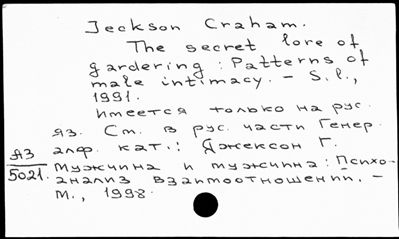 Jeckson Craham.
The secret lore of
gardering : Patterns of
male intimacy. – S.l.,
1991.
имеется только на рус.
яз. См. в рус. части Генер.
алф. кат.: Джексон Г.
Мужчина и мужчина: Психо-
анализ взаимоотношений. –
М., 1998.
ЯЗ
5021.